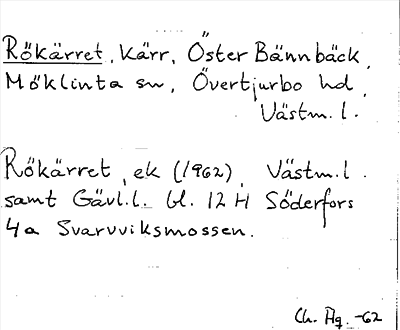 Rökärret, Kärr, Öster Bännbäck,
Möklinta sn, Övertjurbo hd,
Västm. l.
Rökärret, ek (1962), Västm. l.
samt Gävl. l. bl. 12 H Söderfors
4a Svarvviksmossen.
Ch. Äg. -62